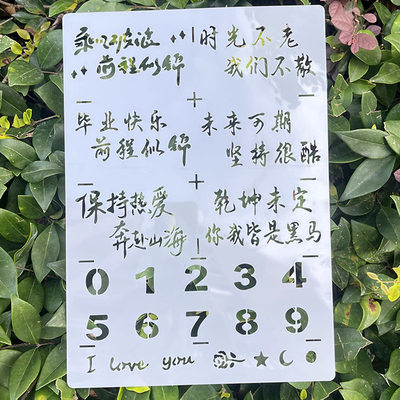 乘风破浪 时光不老
前程似锦 我们不散
毕业快乐 未来可期
前程似锦 坚持很酷
保持热爱 乾坤未定
奔赴山海 你我皆是黑马
0 1 2 3 4
5 6 7 8 9
I love you